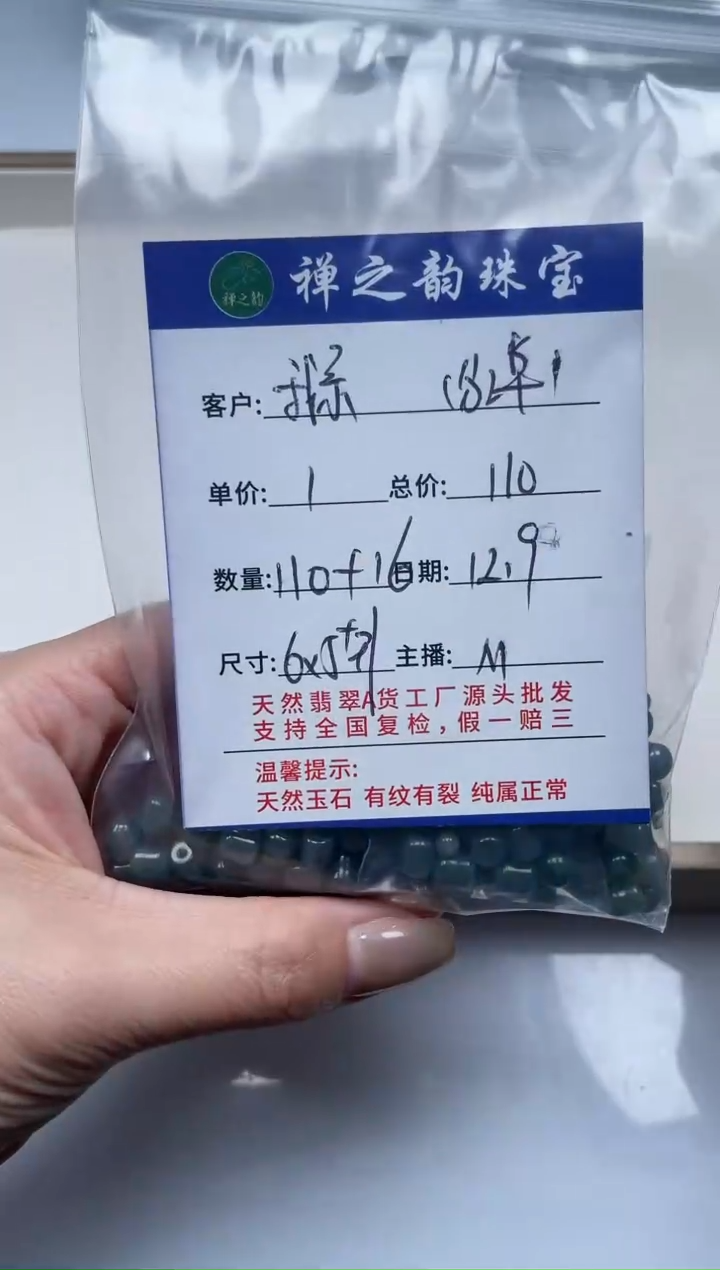 禅之韵 禅之韵珠宝
客户:
单价: 1 总价: 110
数量: 110+16 日期: 12.9
尺寸: 6x5 主播: M
天然翡翠A货工厂源头批发
支持全国复检,假一赔三
温馨提示:
天然玉石 有纹有裂 纯属正常